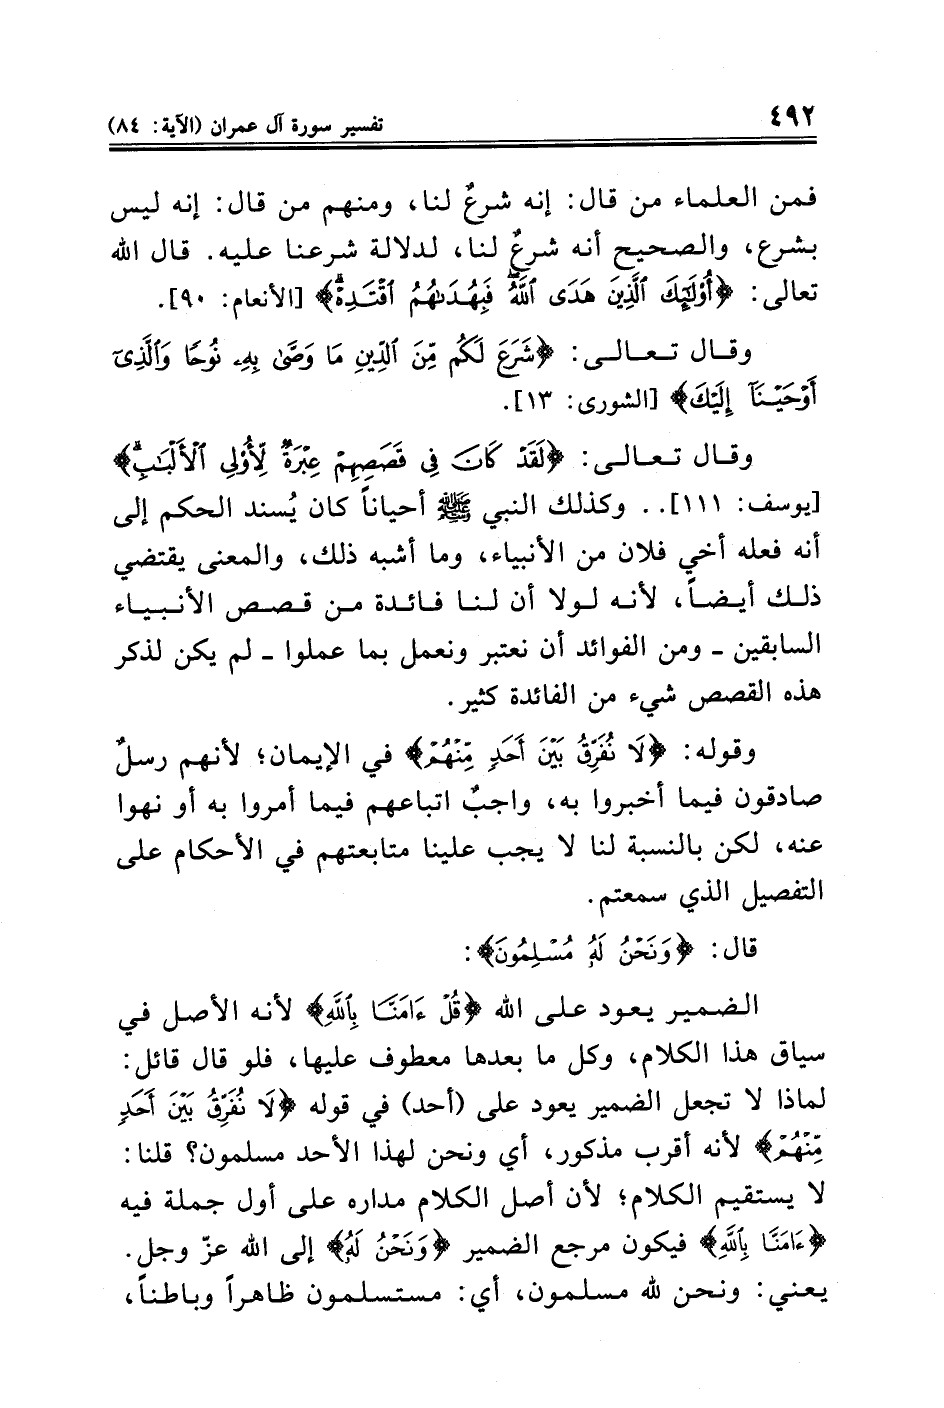 ٤٩٢
تفسير سورة آل عمران (الآية: ٨٤)
فمن العلماء من قال: إنه شرعٌ لنا، ومنهم من قال: إنه ليس
بشرع، والصحيح أنه شرعٌ لنا، لدلالة شرعنا عليه. قال الله
تعالى: ﴿أُوْلَٰٓئِكَ ٱلَّذِينَ هَدَى ٱللَّهُۖ فَبِهُدَىٰهُمُ ٱقْتَدِهْۗ﴾ [الأنعام: ٩٠].
وقـال تـعـالـى: ﴿شَرَعَ لَكُم مِّنَ ٱلدِّينِ مَا وَصَّىٰ بِهِۦ نُوحًا وَٱلَّذِىٓ
أَوْحَيْنَآ إِلَيْكَ﴾ [الشورى: ١٣].
وقـال تـعـالـى: ﴿لَقَدْ كَانَ فِى قَصَصِهِمْ عِبْرَةٌ لِّأُوْلِى ٱلْأَلْبَٰبِۗ﴾
[يوسف: ١١١].. وكذلك النبي ﷺ أحياناً كان يُسند الحكم إلى
أنه فعله أخي فلان من الأنبياء، وما أشبه ذلك، والمعنى يقتضي
ذلـك أيـضـاً، لأنـه لـولا أن لـنـا فـائـدة مـن قـصـص الأنـبـيـاء
السابقين ـ ومن الفوائد أن نعتبر ونعمل بما عملوا ـ لم يكن لذكر
هذه القصص شيء من الفائدة كثير.
وقوله: ﴿لَا نُفَرِّقُ بَيْنَ أَحَدٍ مِّنْهُمْ﴾ في الإيمان؛ لأنهم رسلٌ
صادقون فيما أخبروا به، واجبٌ اتباعهم فيما أمروا به أو نهوا
عنه، لكن بالنسبة لنا لا يجب علينا متابعتهم في الأحكام على
التفصيل الذي سمعتم.
قال: ﴿وَنَحْنُ لَهُۥ مُسْلِمُونَ﴾:
الضمير يعود على الله ﴿قُلْ ءَامَنَّا بِٱللَّهِ﴾ لأنه الأصل في
سياق هذا الكلام، وكل ما بعدها معطوف عليها، فلو قال قائل:
لماذا لا تجعل الضمير يعود على (أحد) في قوله ﴿لَا نُفَرِّقُ بَيْنَ أَحَدٍ
مِّنْهُمْ﴾ لأنه أقرب مذكور، أي ونحن لهذا الأحد مسلمون؟ قلنا:
لا يستقيم الكلام؛ لأن أصل الكلام مداره على أول جملة فيه
﴿ءَامَنَّا بِٱللَّهِ﴾ فيكون مرجع الضمير ﴿وَنَحْنُ لَهُۥ﴾ إلى الله عزّ وجل.
يعني: ونحن لله مسلمون، أي: مستسلمون ظاهراً وباطناً،